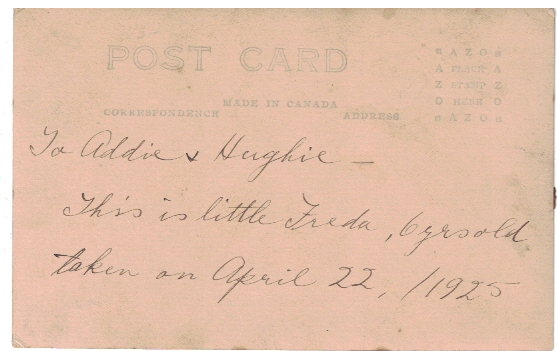 POST CARD
MADE IN CANADA
CORRESPONDENCE ADDRESS
AZO
A PLACE A
Z STAMP Z
O HERE O
AZO
To Addie & Hughie —
This is little Freda, 6 yrs old
taken on April 22, /1925